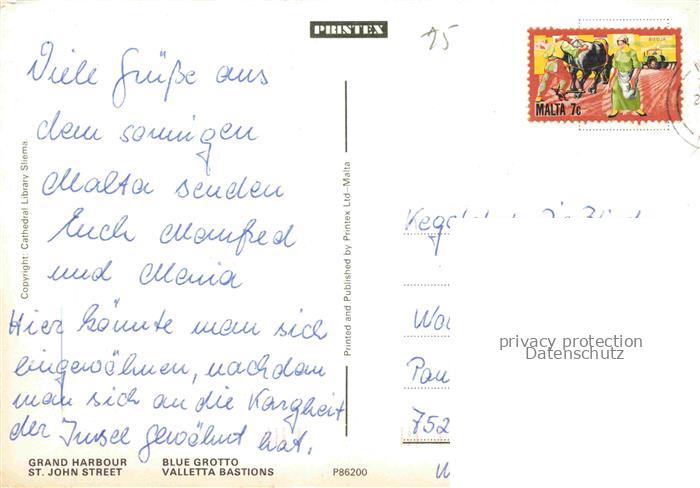 PRINTEX
15
BIDJA
MALTA 7c
Viele Grüße aus
dem sonnigen
Malta senden
Euch Manfred
und Maria
Hier könnte man sich
eingewöhnen, nachdem
man sich an die Kargheit
der Insel gewöhnt hat.
Copyright: Cathedral Library Sliema.
Printed and Published by Printex Ltd—Malta
privacy protection
Datenschutz
752
GRAND HARBOUR BLUE GROTTO
ST. JOHN STREET VALLETTA BASTIONS
P86200